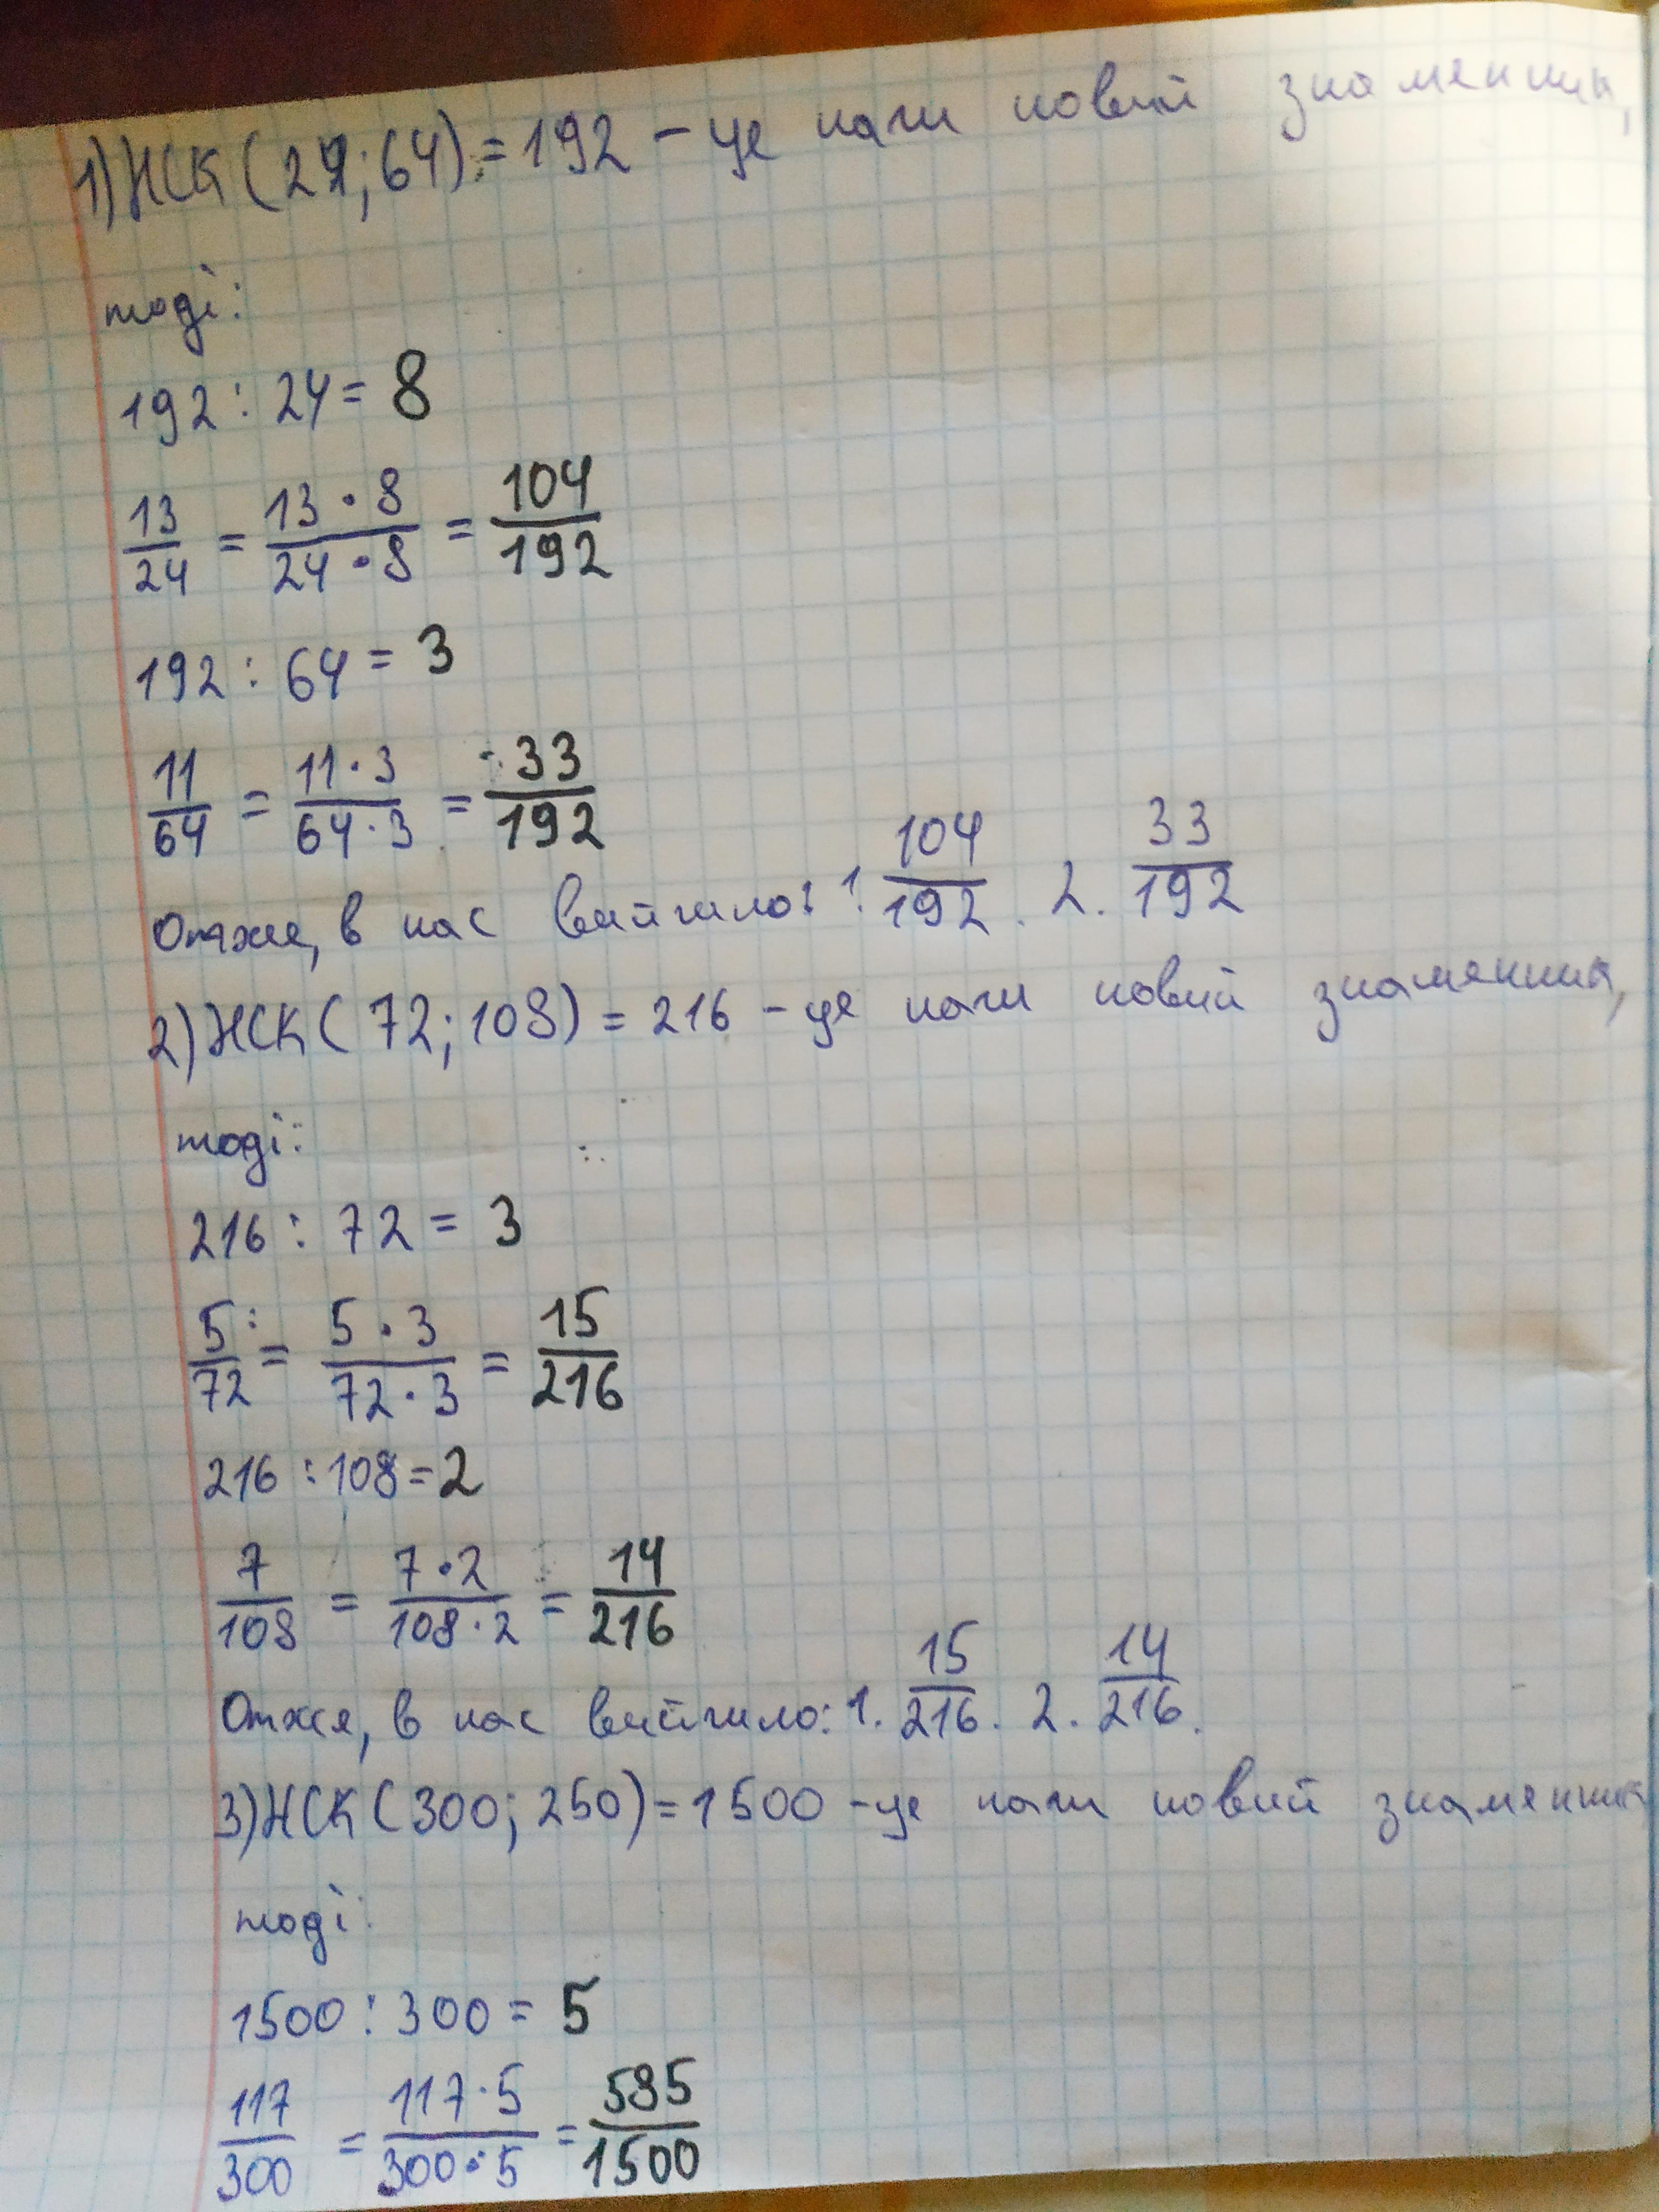 1) НСК (24; 64) = 192 - це наш новий знаменник,
тоді:
192 : 24 = 8
13/24 = 13 • 8/24 • 8 = 104/192
192 : 64 = 3
11/64 = 11 • 3/64 • 3 = 33/192
Отже, в нас вийшло: 1. 104/192. 2. 33/192
2) НСК ( 72; 108) = 216 - це наш новий знаменник,
тоді:
216 : 72 = 3
5/72 = 5 • 3/72 • 3 = 15/216
216 : 108 = 2
7/108 = 7 • 2/108 • 2 = 14/216
Отже, в нас вийшло: 1. 15/216. 2. 14/216.
3) НСК ( 300; 250) = 1500 - це наш новий знаменник
тоді:
1500 : 300 = 5
117/300 = 117 • 5/300 • 5 = 585/1500